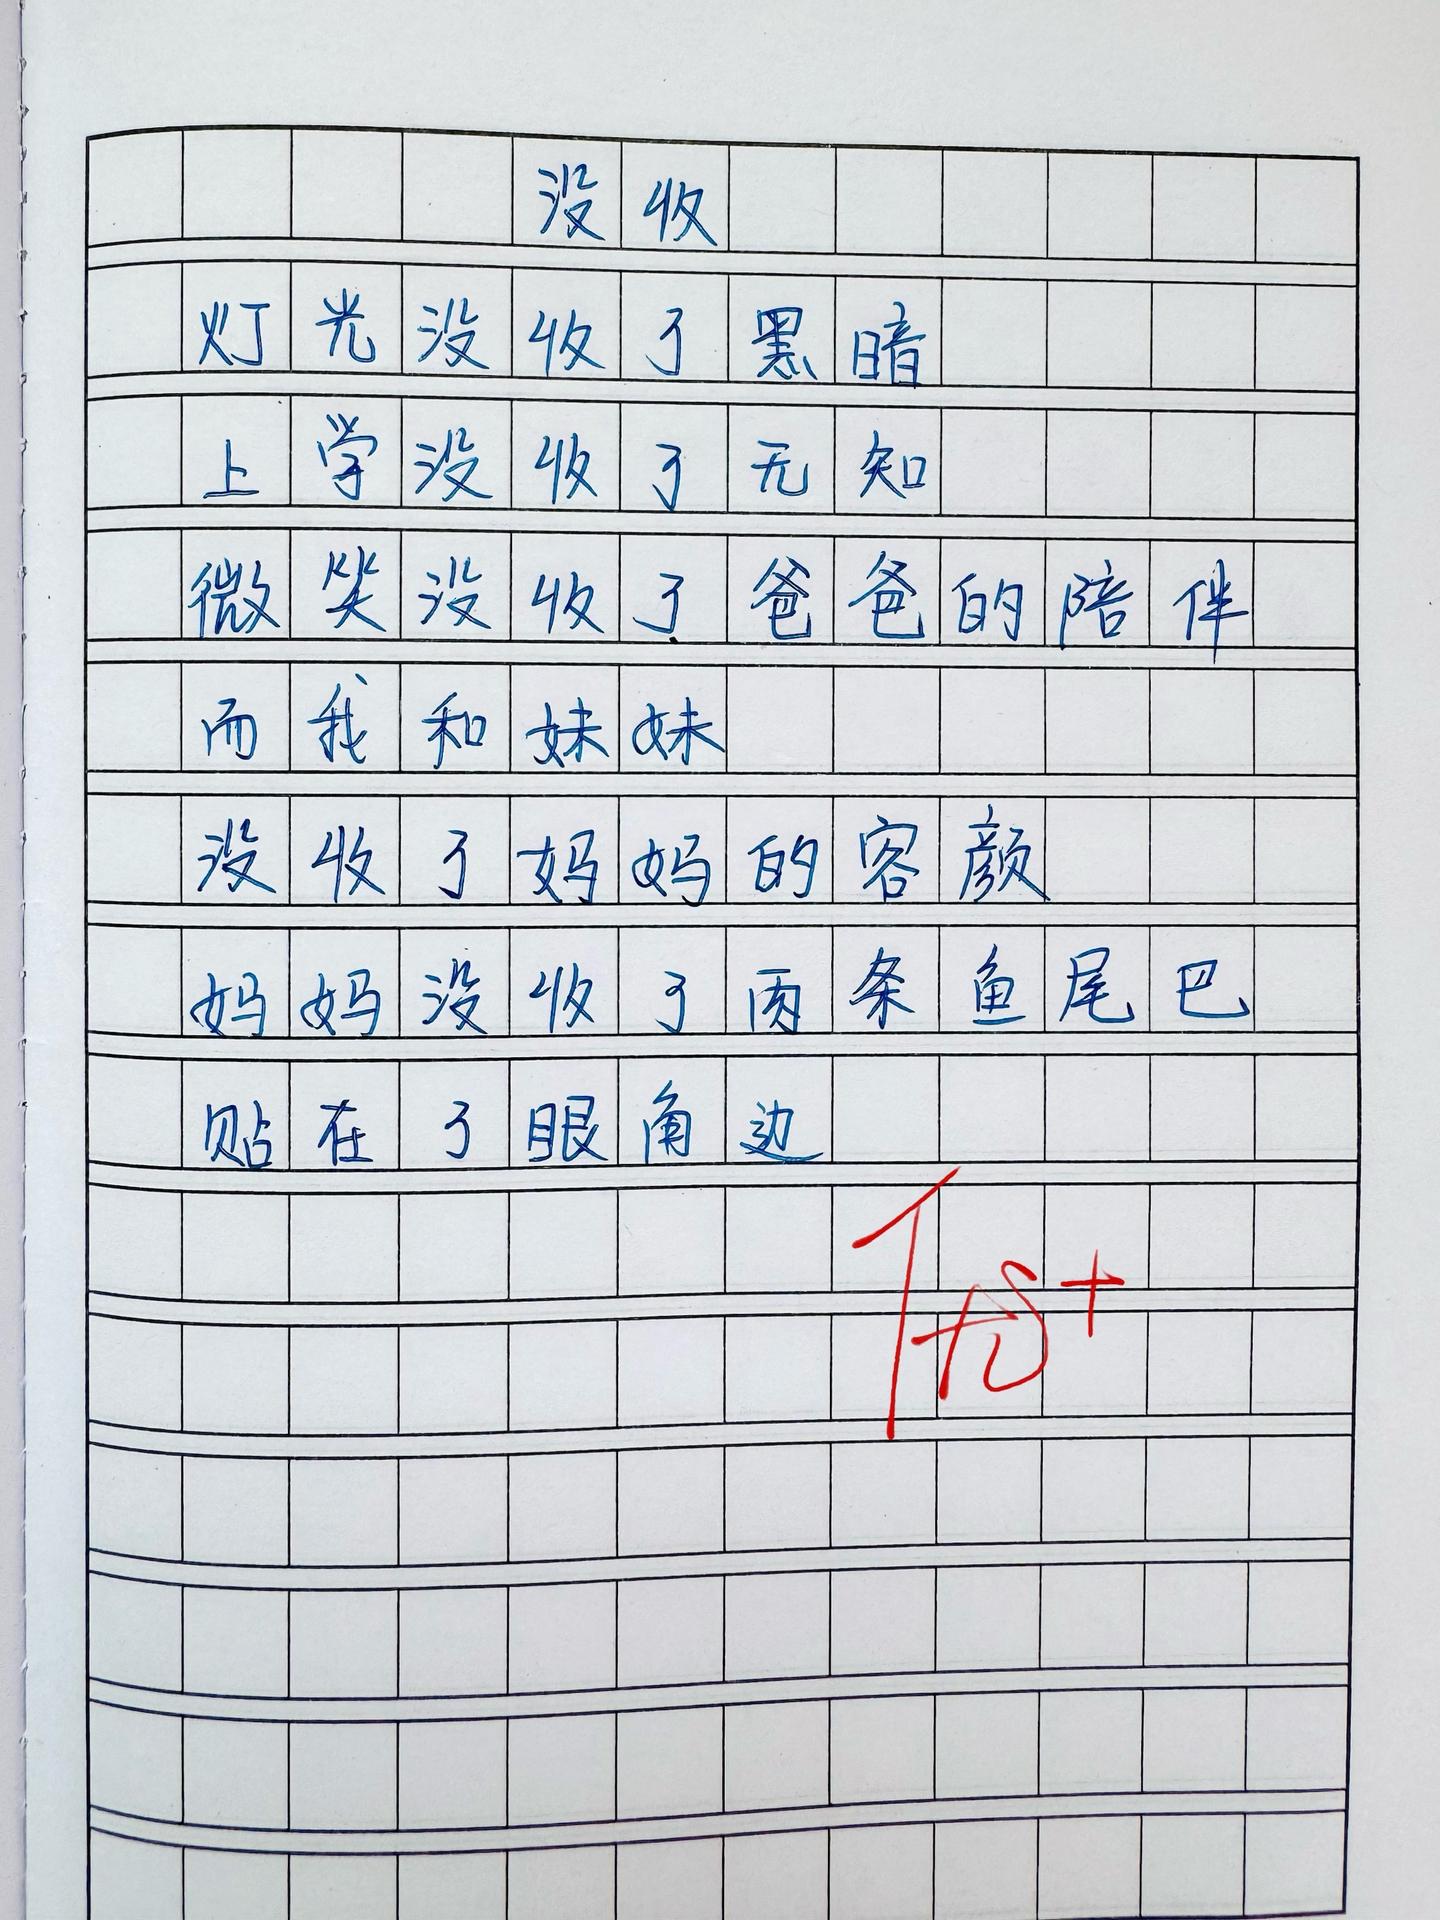 没收
灯光没收了黑暗
上学没收了无知
微笑没收了爸爸的陪伴
而我和妹妹
没收了妈妈的容颜
妈妈没收了两条鱼尾巴
贴在了眼角边
优+